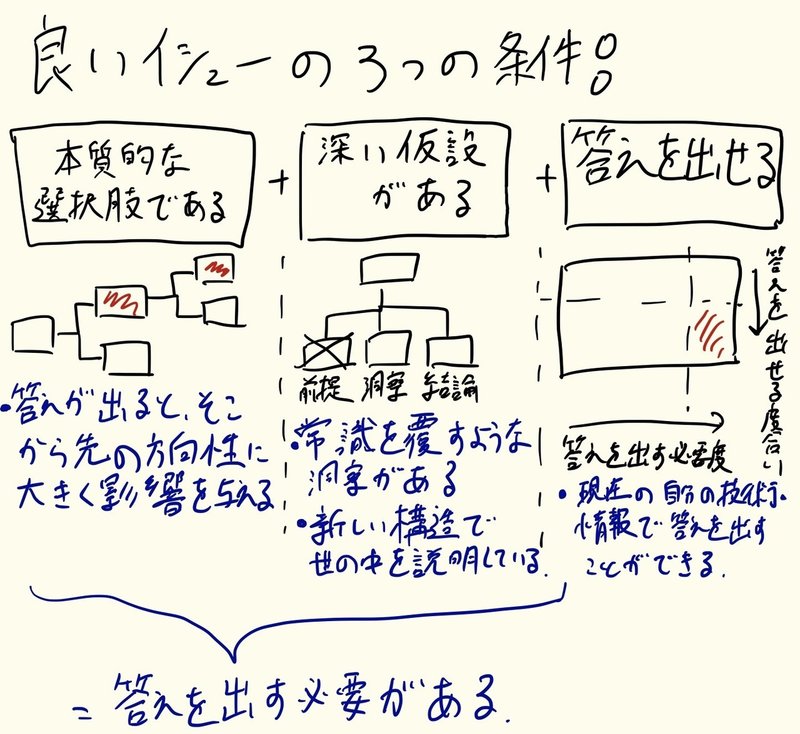 良いイシューの3つの条件!!
本質的な
選択肢である
+
深い仮設
がある
+
答えを出せる
前提 洞察 結論
答えを出せる度合い
答えを出す必要度
・答えが出ると、そこ
から先の方向性に
大きく影響を与える
・常識を覆すような
洞察がある
・新しい構造で
世の中を説明している.
・現在の自分の技術・
情報で答えを出す
ことができる.
= 答えを出す必要がある.